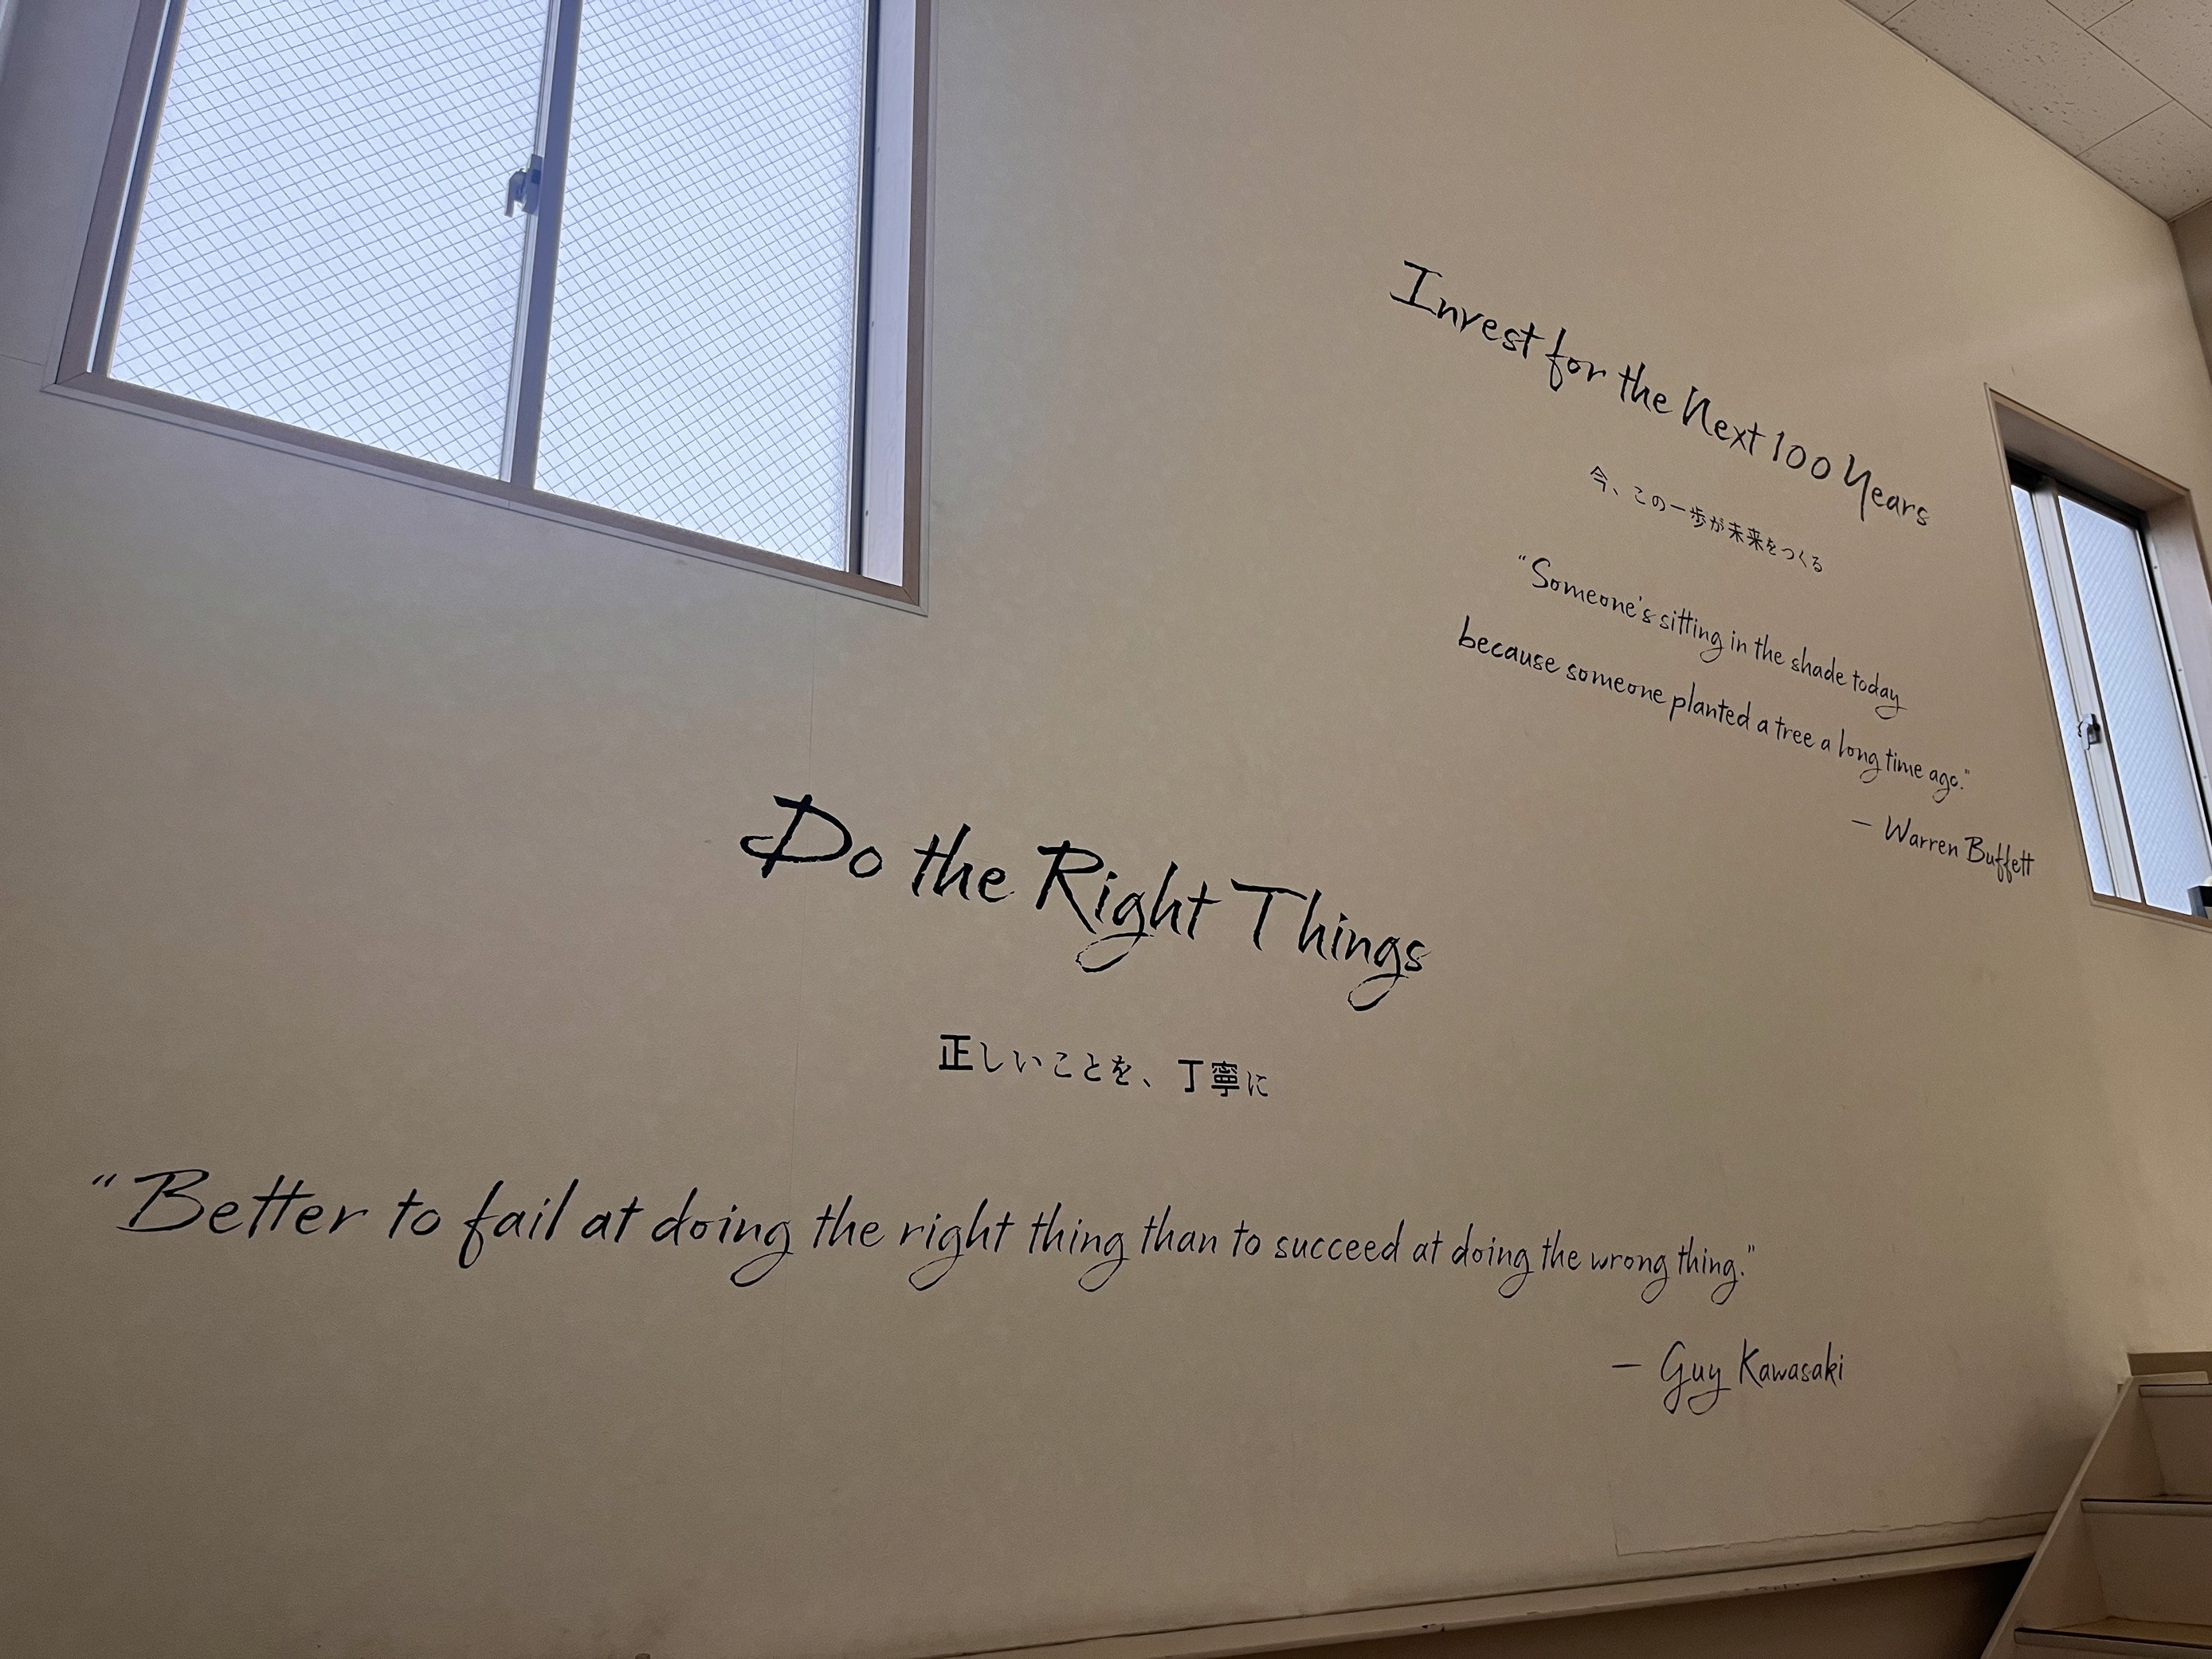 Invest for the Next 100 Years
今、この一歩が未来をつくる
"Someone's sitting in the shade today
because someone planted a tree a long time ago."
— Warren Buffett
Do the Right Things
正しいことを、丁寧に
"Better to fail at doing the right thing than to succeed at doing the wrong thing."
— Guy Kawasaki